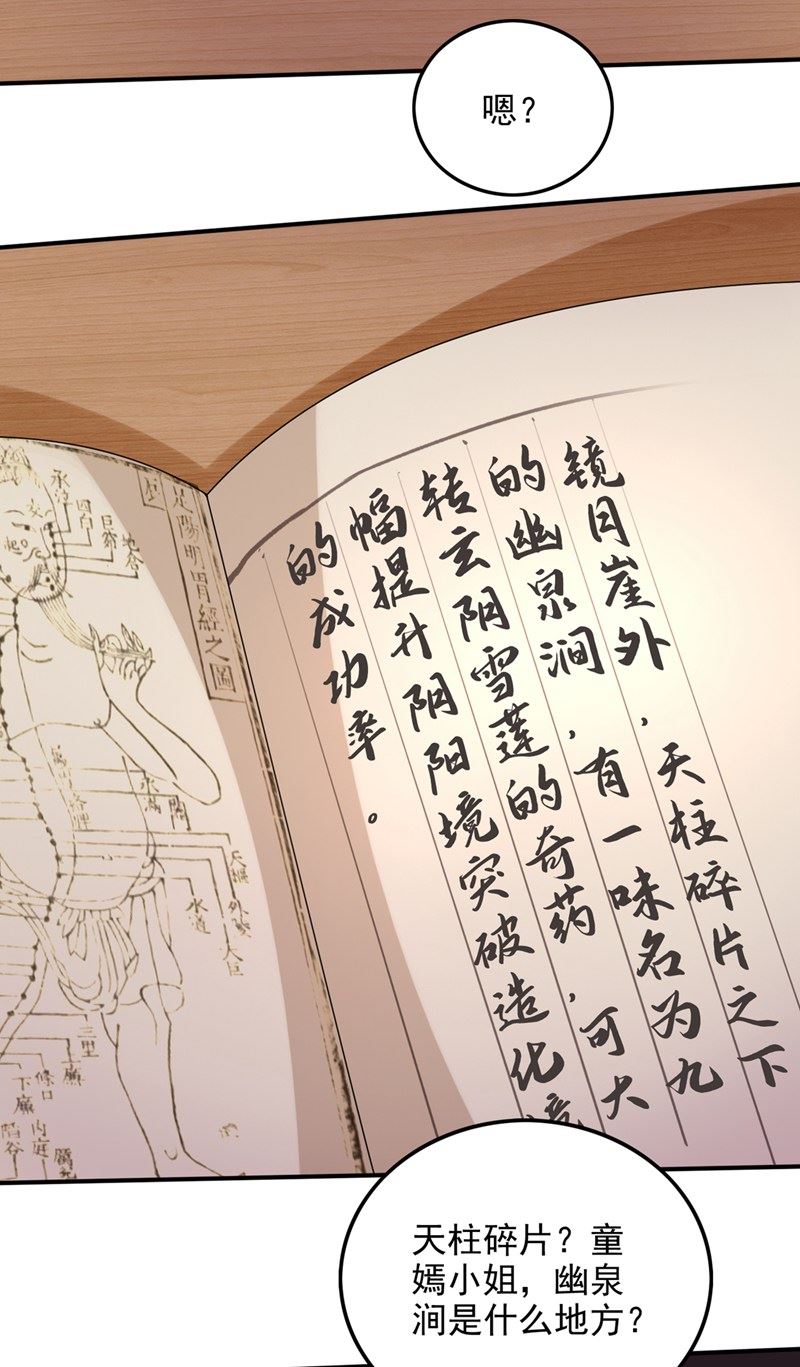 嗯？
镜月崖外，天柱碎片之下
的幽泉涧，有一味名为九
转玄阴雪莲的奇药，可大
幅提升阴阳境突破造化境
的成功率。
足陽明胃經之圖
承泣
四白
巨窌
地倉
水道
天樞
外陵
大巨
三里
條口
下廉
内庭
陷谷
天柱碎片？童
嫣小姐，幽泉
涧是什么地方？